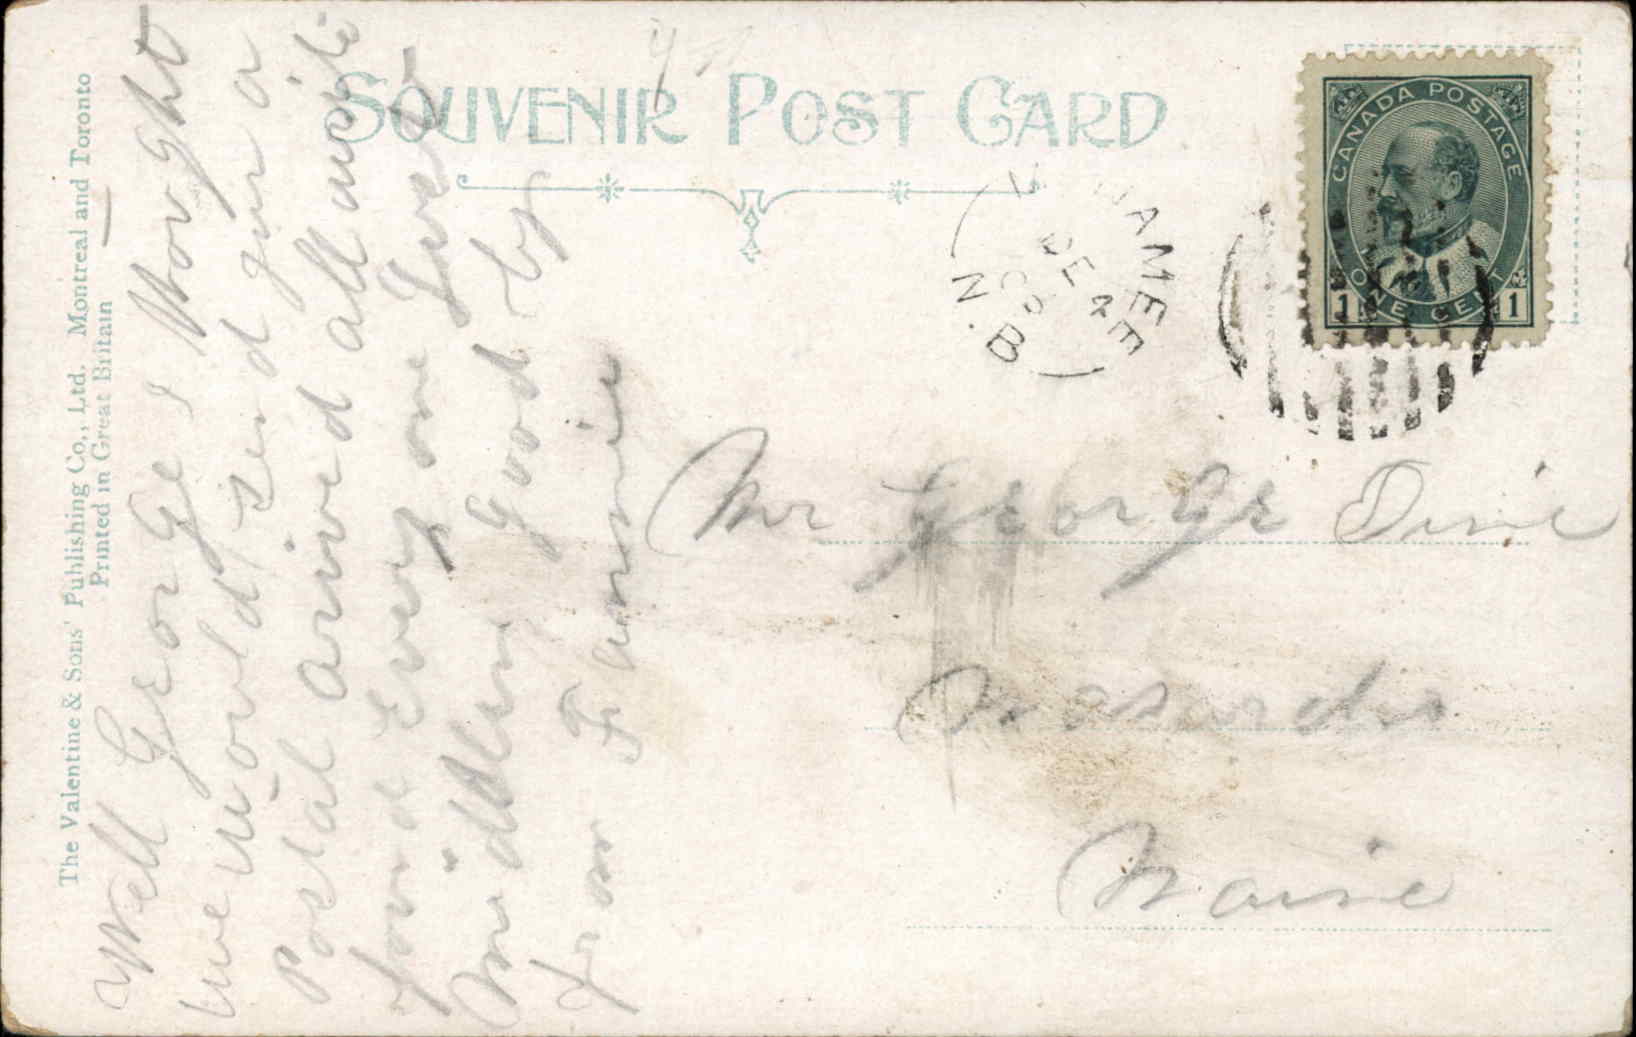 SOUVENIR POST CARD
The Valentine & Sons' Publishing Co., Ltd. Montreal and Toronto
Printed in Great Britain
CANADA POSTAGE
ONE CENT
1 1
AMEE
DE 4
09
N.B
Well George I thought
we would send you a
Postal arived all
found Every one
Middlen good by
from Fannie
Mr George
Masardis
Maine